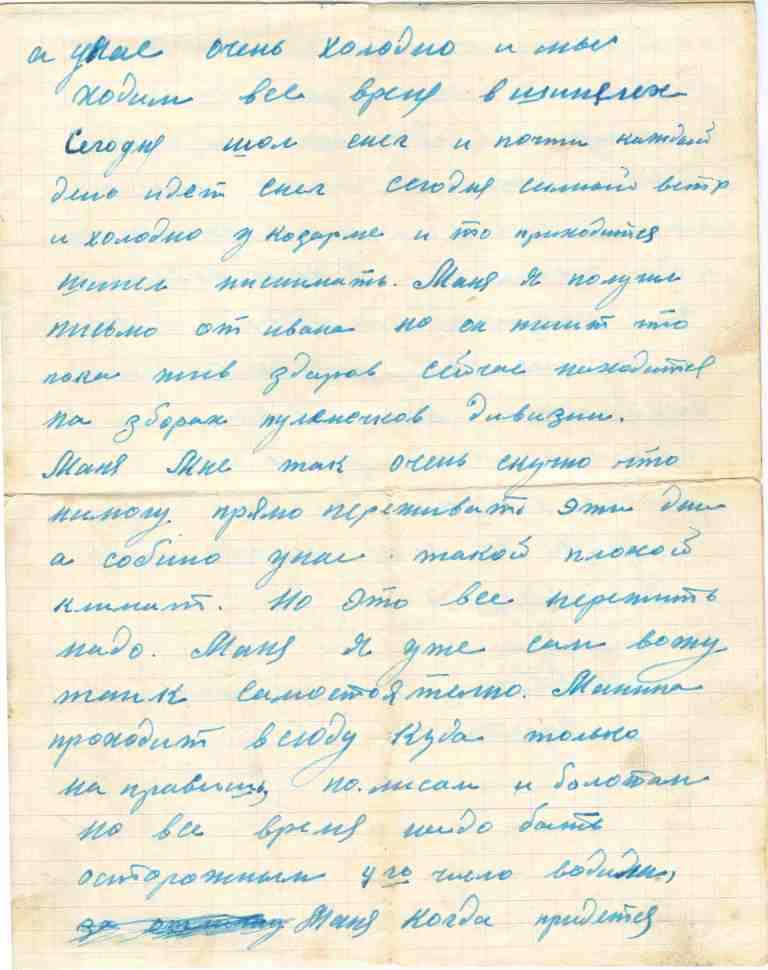 а унас очень холодно и мы
ходим все время в шинелях
Сегодня шол снег и почти каждый
день идет снег сегодня силный ветр
и холодно у козарме и то приходится
шинел нисиимать. Маня я получил
письмо от ивана но он пишит что
пока жив здаров сейчас находится
на зборах пулеметчиков дивизии.
Маня Мне так очень скучно что
нимогу прямо переживать эти дни
а собино унас такой плохой
климат. Но это все пережить
надо. Маня я уже сам вожу
танк самостоятелно. Машина
проходит всюду Куда только
направиш, по лисам и болотам
но все время надо быть
осторожным 4го число водили,
Маня когда придется